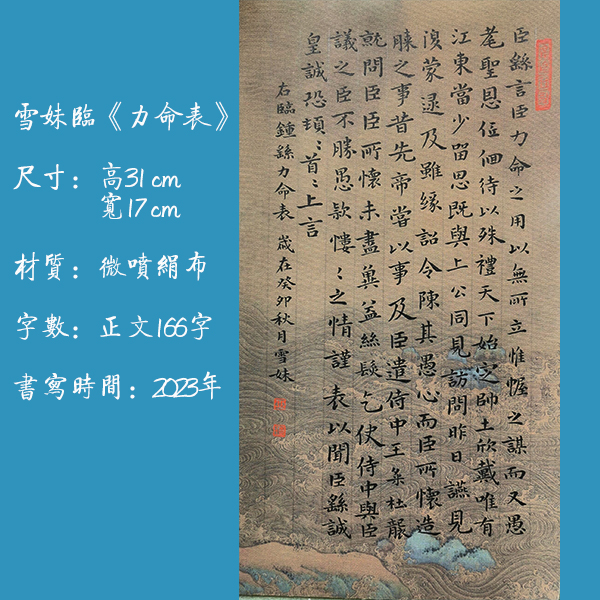 雪妹臨《力命表》
尺寸：高31cm
寬17cm
材質：微噴絹布
字數：正文166字
書寫時間：2023年
臣繇言臣力命之用以無所立惟幄之謀而又愚
耄聖恩低佪待以殊禮天下始定帥土欣戴唯有
江東當少留思既與上公同見訪問昨日讌見
復蒙逮及雖緣詔令陳其愚心而臣所懷造
膝之事昔先帝嘗以事及臣遣侍中王粲杜襲
就問臣臣所懷未盡冀益絲髮乞使侍中與臣
議之臣不勝愚款慺〻之情謹表以聞臣繇誠
皇誠恐頓〻首〻上言
右臨鍾繇力命表 歲在癸卯秋月雪妹